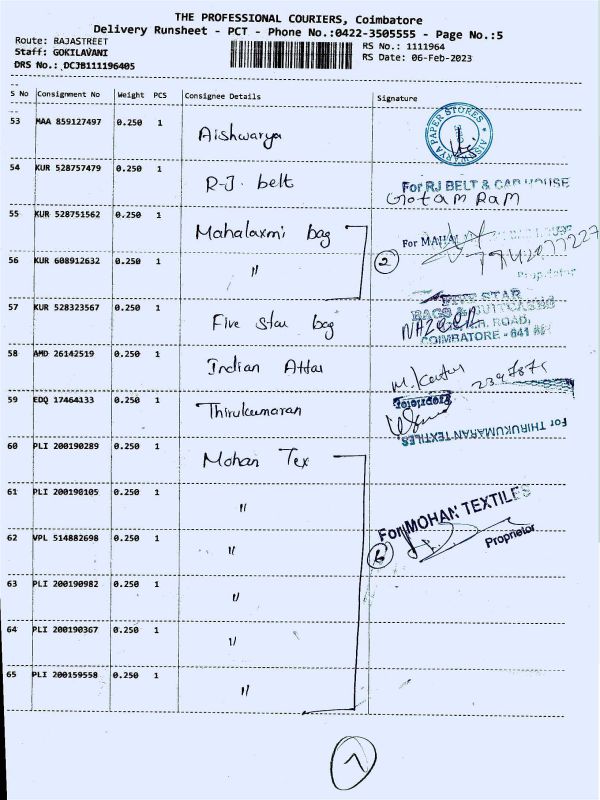 THE PROFESSIONAL COURIERS, Coimbatore
Delivery Runsheet - PCT - Phone No.:0422-3505555 - Page No.:5
Route: RAJASTREET
RS No.: 1111964
Staff: GOKILAVANI
RS Date: 06-Feb-2023
DRS No.: DCJB111196405
S No Consignment No Weight PCS Consignee Details Signature
53 MAA 859127497 0.250 1 Aishwarya AISWARYA PAPER STORES
54 KUR 528757479 0.250 1 R-J. belt For RJ BELT & CAP HOUSE
Gotam Ram
55 KUR 528751562 0.250 1 Mahalaxmi bag For MAHAL
56 KUR 608912632 0.250 1 " 2 7742077227
Proprietor
57 KUR 528323567 0.250 1 Five star bag FIVE STAR
BAGS & SUITCASES
ROAD,
COIMBATORE - 641
58 AMD 26142519 0.250 1 Indian Attar
59 EDQ 17464133 0.250 1 Thirukumaran Proprietor
For THIRUKUMARAN TEXTILES
60 PLI 200190289 0.250 1 Mohan Tex
61 PLI 200190105 0.250 1 " For MOHAN TEXTILES
62 VPL 514882698 0.250 1 " 6 Proprietor
63 PLI 200190982 0.250 1 "
64 PLI 200190367 0.250 1 "
65 PLI 200159558 0.250 1 "
7